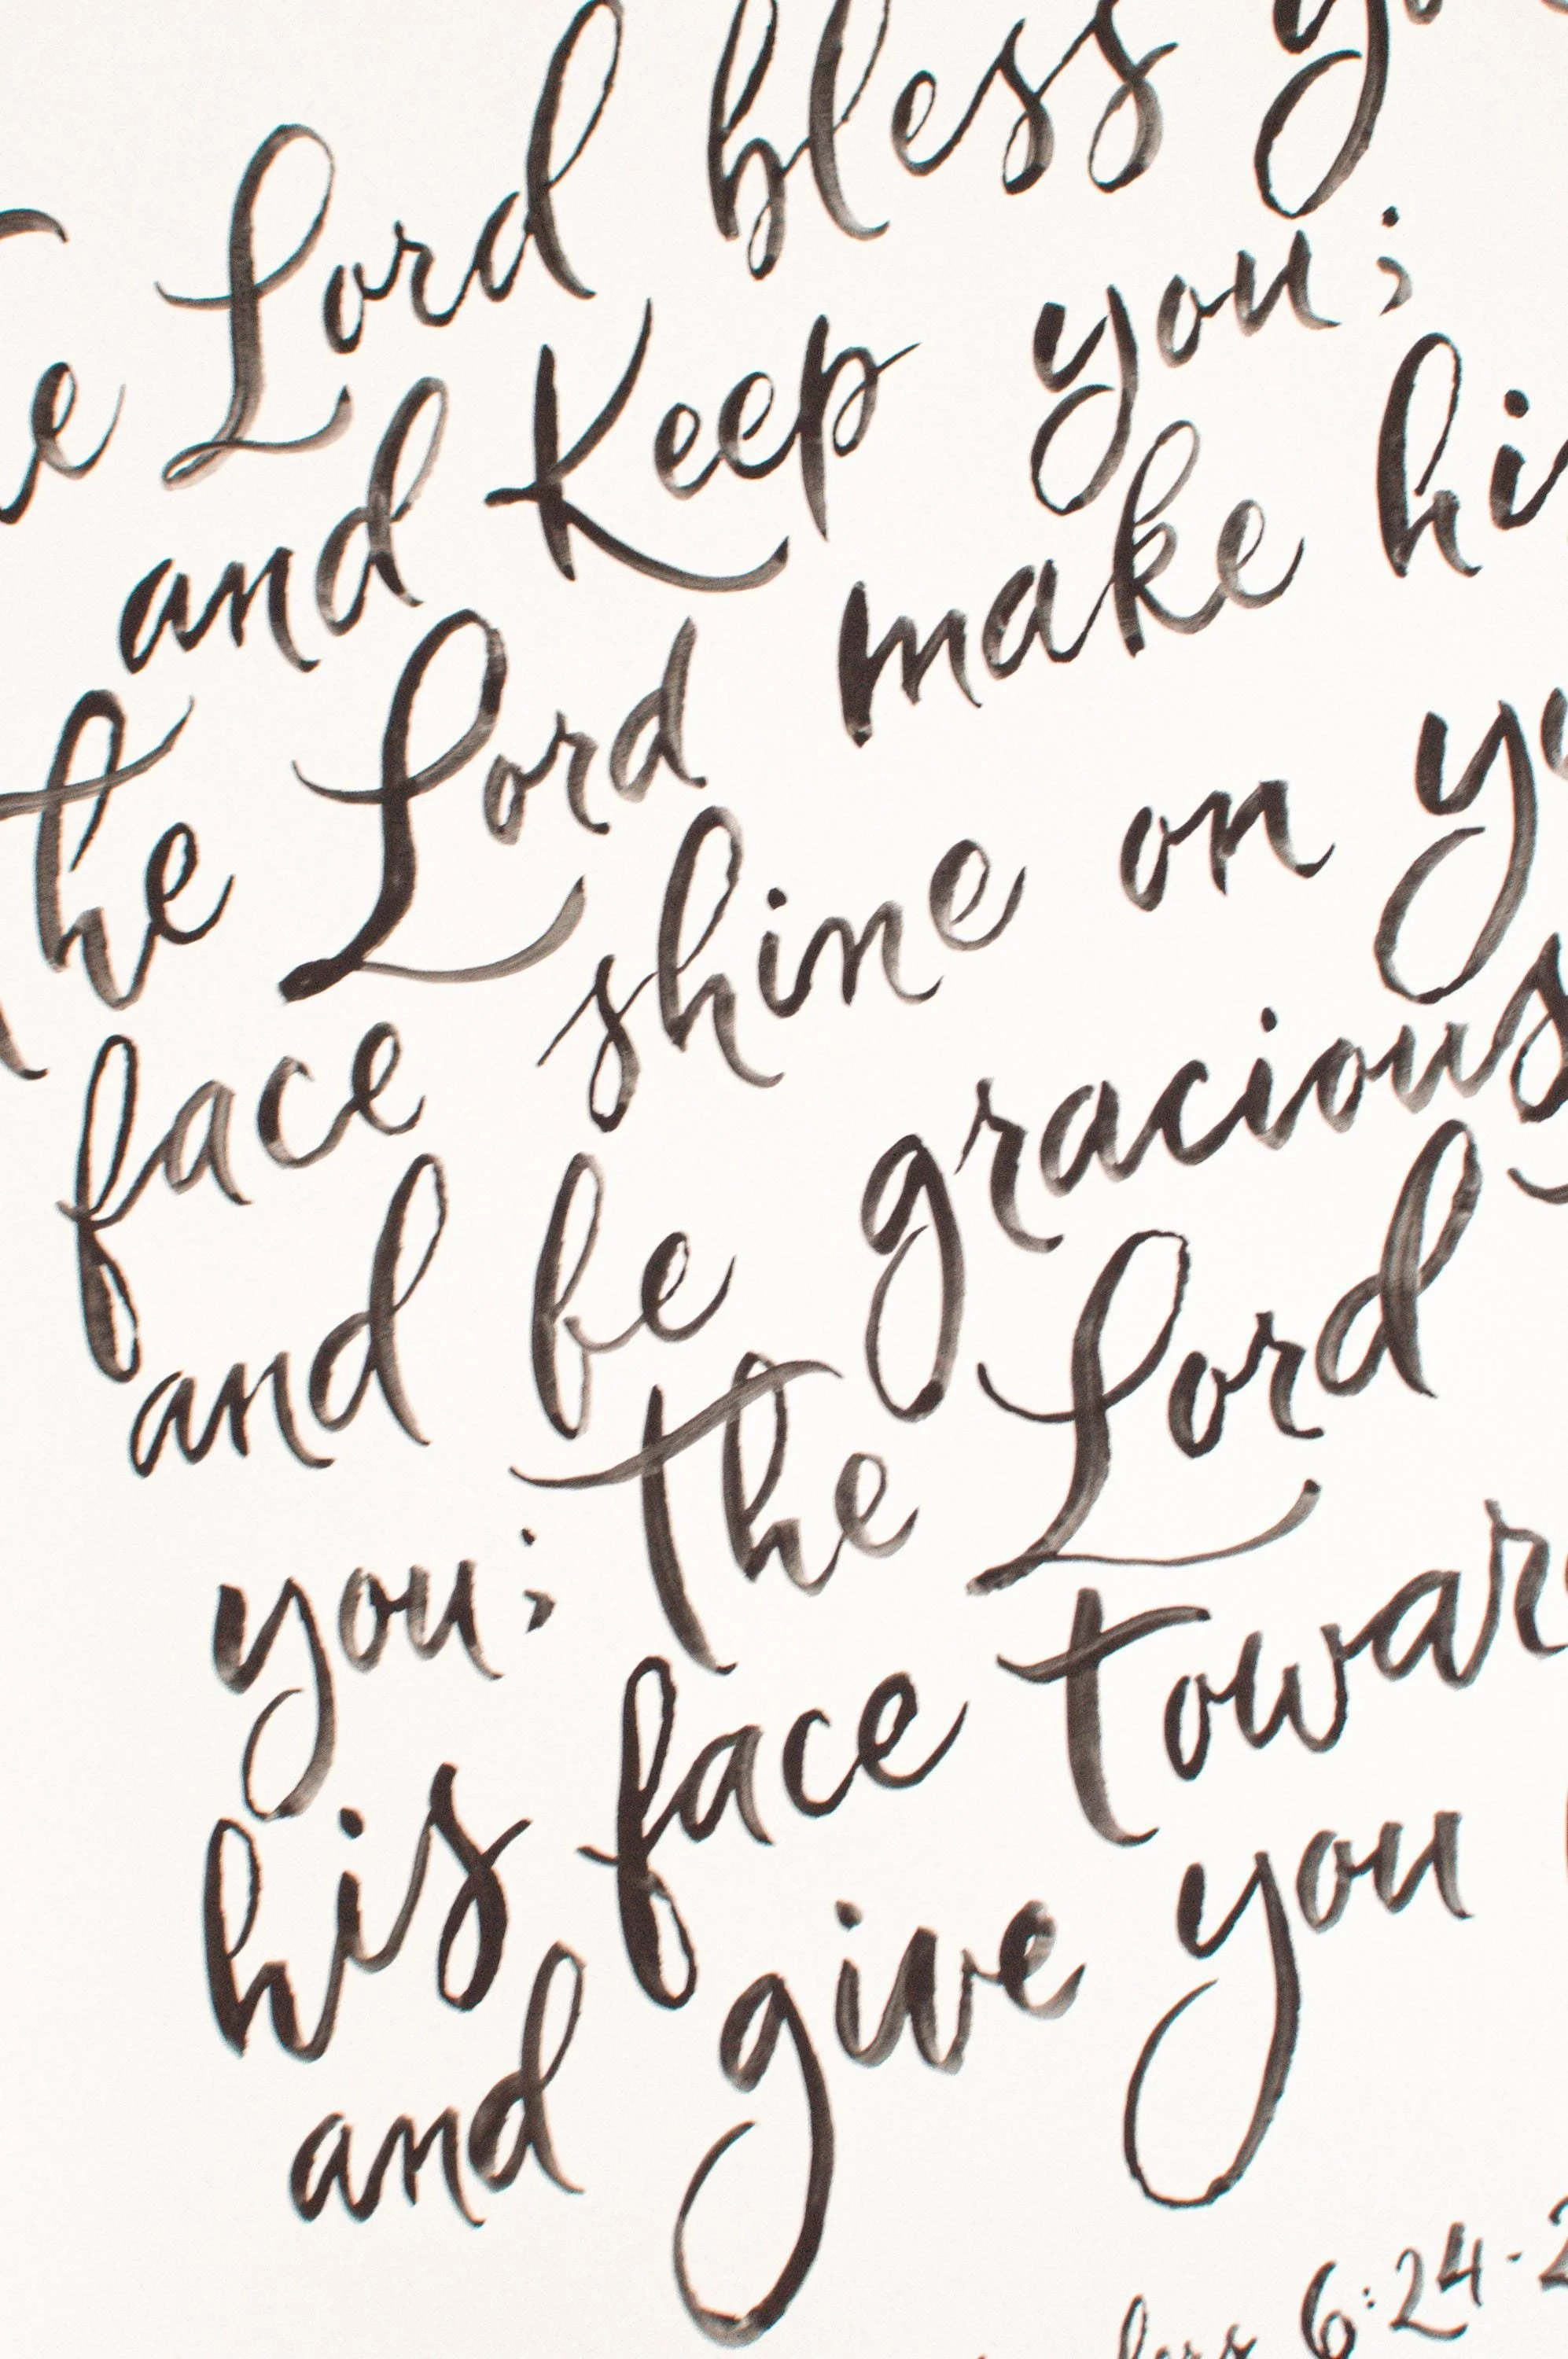 Lord bless
and Keep you;
the Lord make
face shine on
and be gracious
you; the Lord
his face
and give you
6:24-2